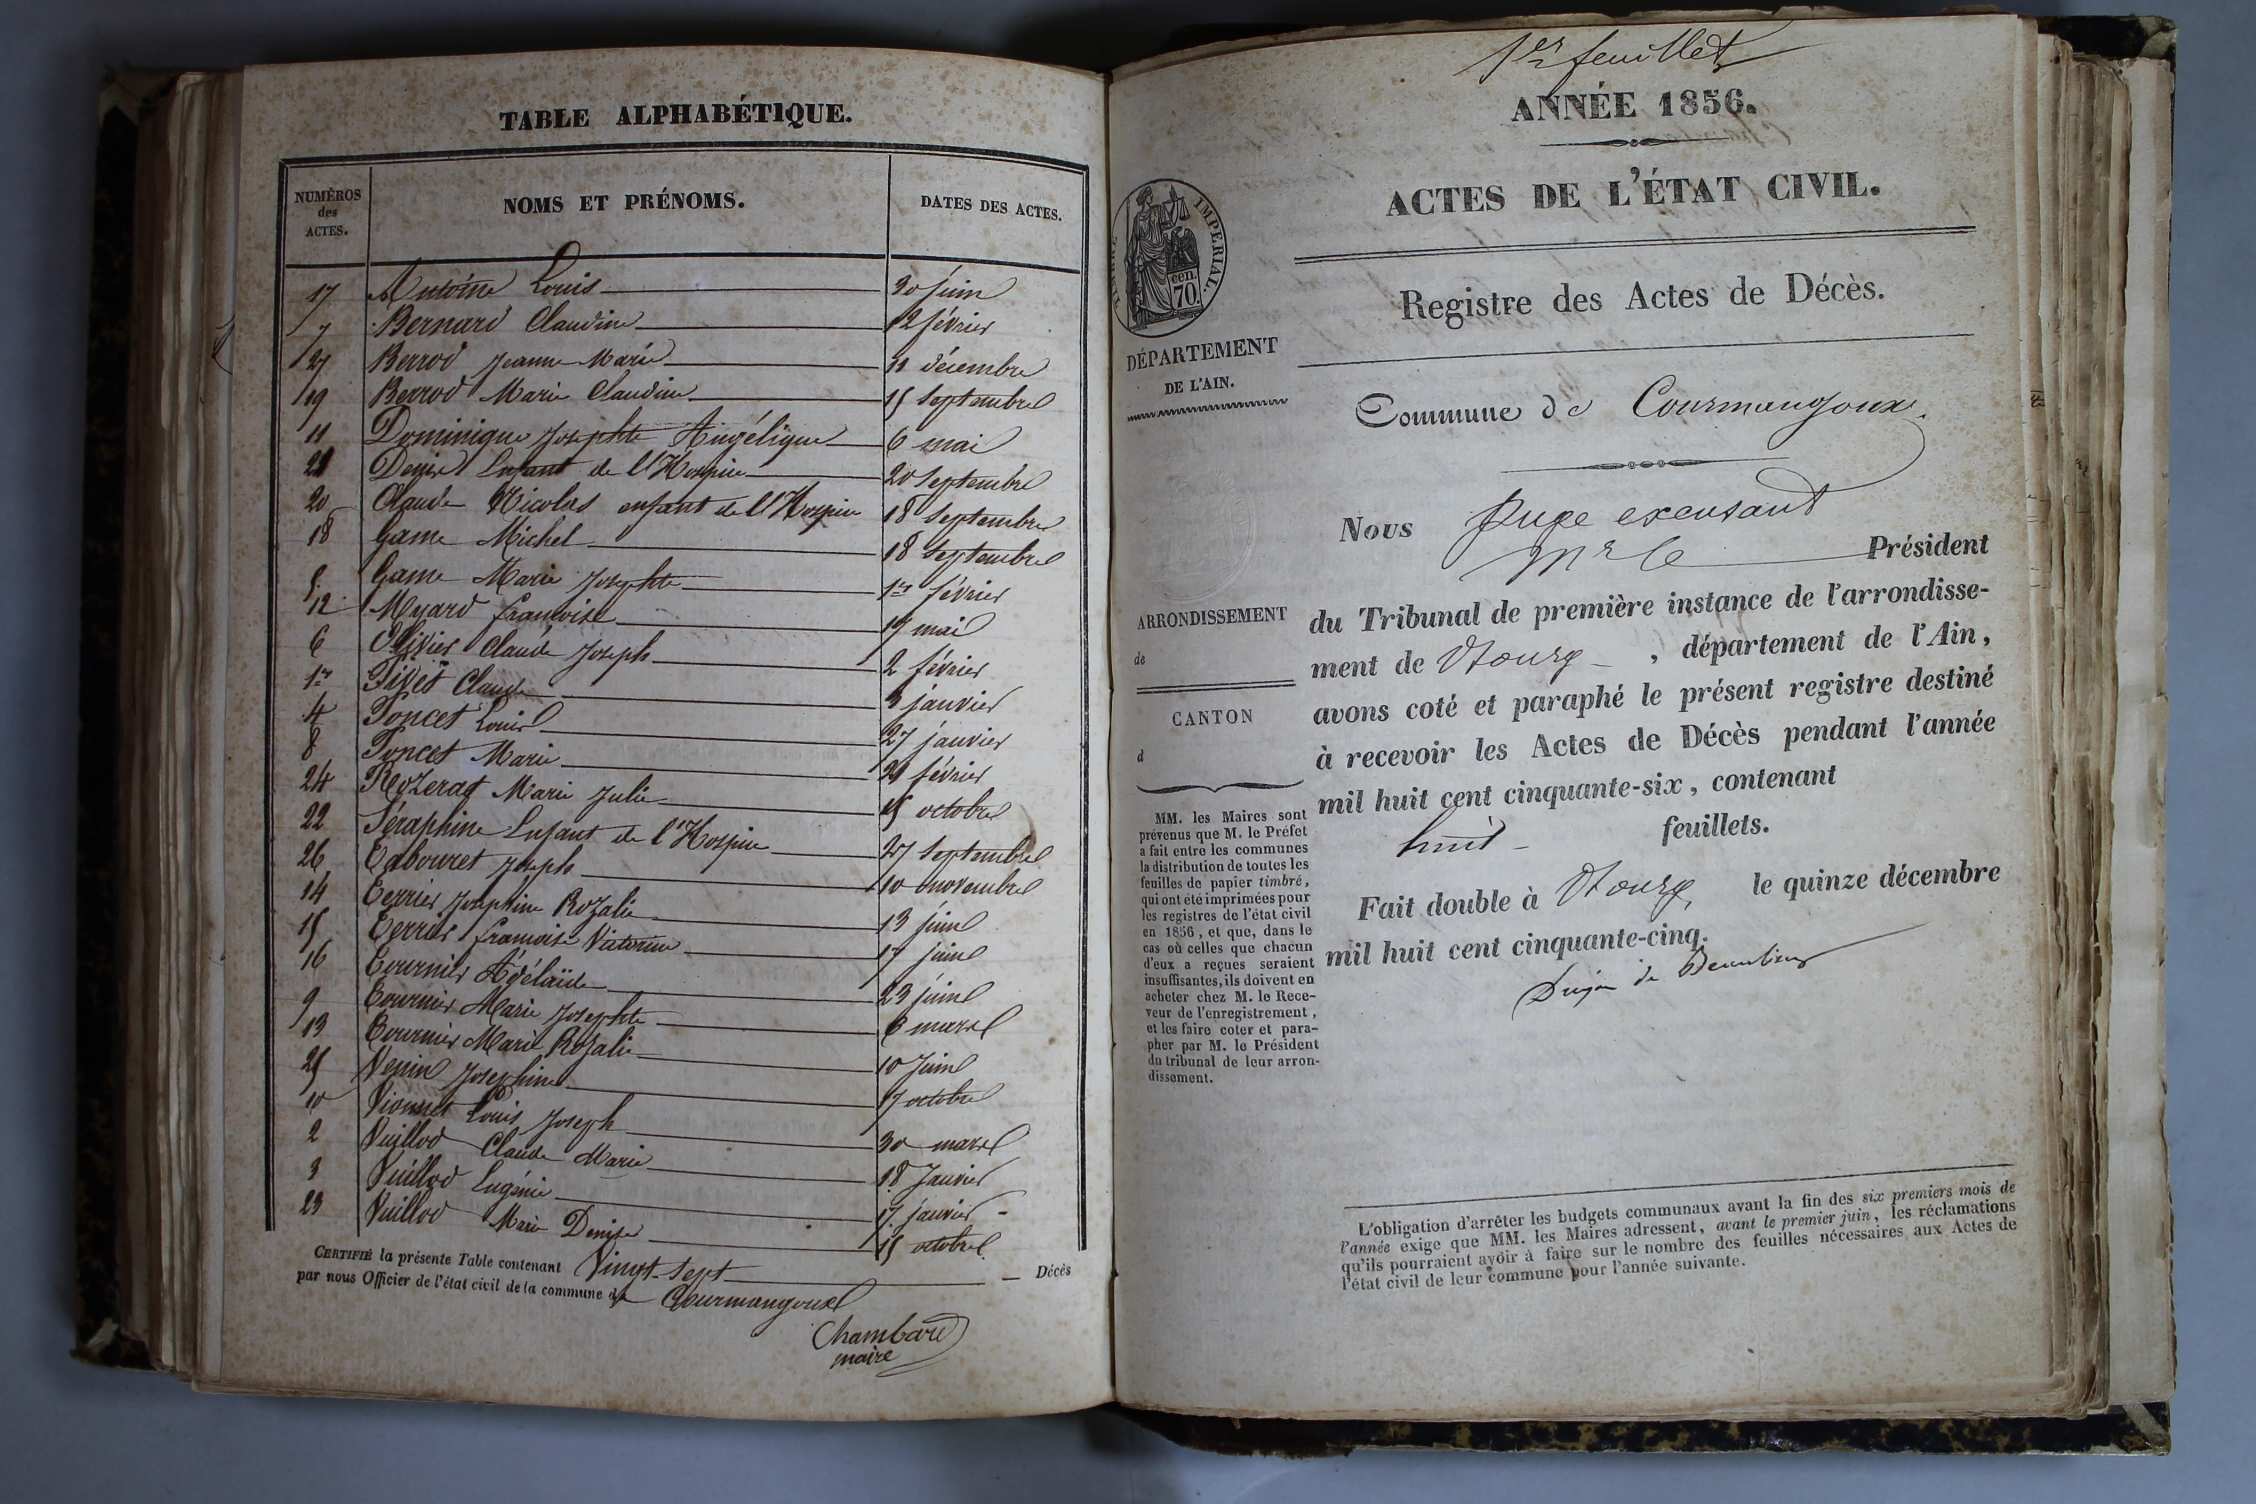 TABLE ALPHABÉTIQUE.
NUMÉROS des ACTES. NOMS ET PRÉNOMS. DATES DES ACTES.
17 Antoine Louis 30 juin
7 Bernard Claudine 12 février
27 Berrod Jeanne Marie 11 décembre
19 Berrod Marie Claudine 15 septembre
11 Dominique Josephte Angélique 6 mai
21 Denise Enfant de l'Hospice 20 septembre
20 Claude Nicolas enfant de l'Hospice 18 septembre
18 Game Michel 18 septembre
5 Game Marie Josephte 1er février
12 Myard françoise 19 mai
6 Ollivier Claude Joseph 2 février
1er Pivet Claude 3 janvier
4 Poncet Louis 27 janvier
8 Poncet Marie 21 février
24 Rozerat Marie Julie 15 octobre
22 Séraphine Enfant de l'Hospice 27 septembre
26 Tabouret Joseph 10 novembre
14 Terrier Joséphine Rozalie 13 juin
15 Terrier françoise Victorine 17 juin
16 Tournier Adélaïde 23 juin
9 Tournier Marie Josephte 6 mars
13 Tournier Marie Rozalie 10 Juin
25 Venin Joséphine 17 octobre
10 Vionnet Louis Joseph 30 mars
2 Vuillod Claude Marie 18 Janvier
3 Vuillod Eugénie 17 janvier
23 Vuillod Marie Denise 15 octobre
CERTIFIÉ la présente Table contenant Vingt-sept Décès
par nous Officier de l'état civil de la commune de Courmangoux
Chambard
maire
1er feuillet
ANNÉE 1856.
ACTES DE L'ÉTAT CIVIL.
TIMBRE IMPERIAL.
cen.
70.
Registre des Actes de Décès.
DÉPARTEMENT
DE L'AIN.
Commune de Courmangoux
Nous Juge
Président
ARRONDISSEMENT
de
CANTON
d
du Tribunal de première instance de l'arrondisse-
ment de Bourg , département de l'Ain,
avons coté et paraphé le présent registre destiné
à recevoir les Actes de Décès pendant l'année
mil huit cent cinquante-six, contenant
huit feuillets.
Fait double à Bourg le quinze décembre
mil huit cent cinquante-cinq.
MM. les Maires sont
prévenus que M. le Préfet
a fait entre les communes
la distribution de toutes les
feuilles de papier timbré,
qui ont été imprimées pour
les registres de l'état civil
en 1856, et que, dans le
cas où celles que chacun
d'eux a reçues seraient
insuffisantes, ils doivent en
acheter chez M. le Rece-
veur de l'enregistrement,
et les faire coter et para-
pher par M. le Président
du tribunal de leur arron-
dissement.
L'obligation d'arrêter les budgets communaux avant la fin des six premiers mois de
l'année exige que MM. les Maires adressent, avant le premier juin, les réclamations
qu'ils pourraient avoir à faire sur le nombre des feuilles nécessaires aux Actes de
l'état civil de leur commune pour l'année suivante.